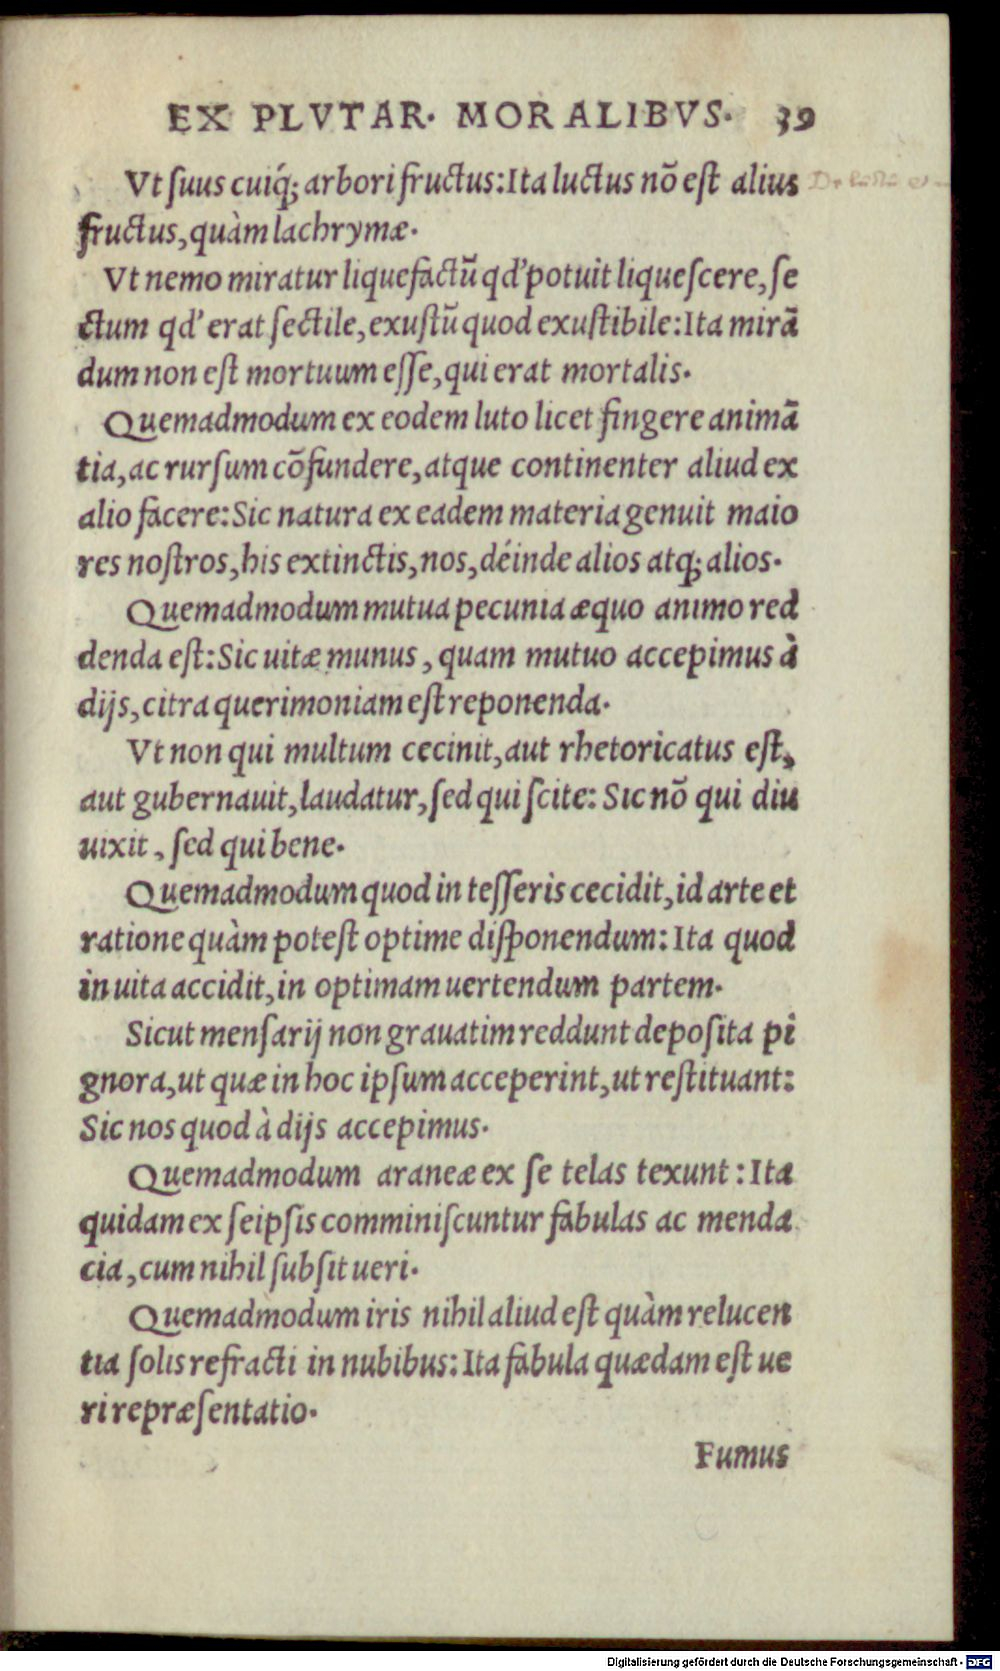 EX PLVTAR. MORALIBVS. 39
Vt ſuus cuiq́; arbori fructus: Ita luctus nõ eſt alius
fructus, quàm lachrymæ.
Vt nemo miratur liquefactũ qd' potuit liqueſcere, ſe
ctum qd' erat ſectile, exuſtũ quod exuſtibile: Ita mirã
dum non eſt mortuum eſſe, qui erat mortalis.
Quemadmodum ex eodem luto licet fingere animã
tia, ac rurſum cõfundere, atque continenter aliud ex
alio facere: Sic natura ex eadem materia genuit maio
res noſtros, his extinctis, nos, déinde alios atq; alios.
Quemadmodum mutua pecunia æquo animo red
denda eſt: Sic uitæ munus, quam mutuo accepimus à
dijs, citra querimoniam eſt reponenda.
Vt non qui multum cecinit, aut rhetoricatus eſt,
aut gubernauit, laudatur, ſed qui ſcite: Sic nõ qui diu
uixit, ſed qui bene.
Quemadmodum quod in teſſeris cecidit, id arte et
ratione quàm poteſt optime diſponendum: Ita quod
in uita accidit, in optimam uertendum partem.
Sicut menſarij non grauatim reddunt depoſita pi
gnora, ut quæ in hoc ipſum acceperint, ut reſtituant:
Sic nos quod à dijs accepimus.
Quemadmodum araneæ ex ſe telas texunt: Ita
quidam ex ſeipſis comminiſcuntur fabulas ac menda
cia, cum nihil ſubſit ueri.
Quemadmodum iris nihil aliud eſt quàm relucen
tia ſolis refracti in nubibus: Ita fabula quædam eſt ue
ri repræſentatio.
Fumus
Digitalisierung gefördert durch die Deutsche Forschungsgemeinschaft - DFG